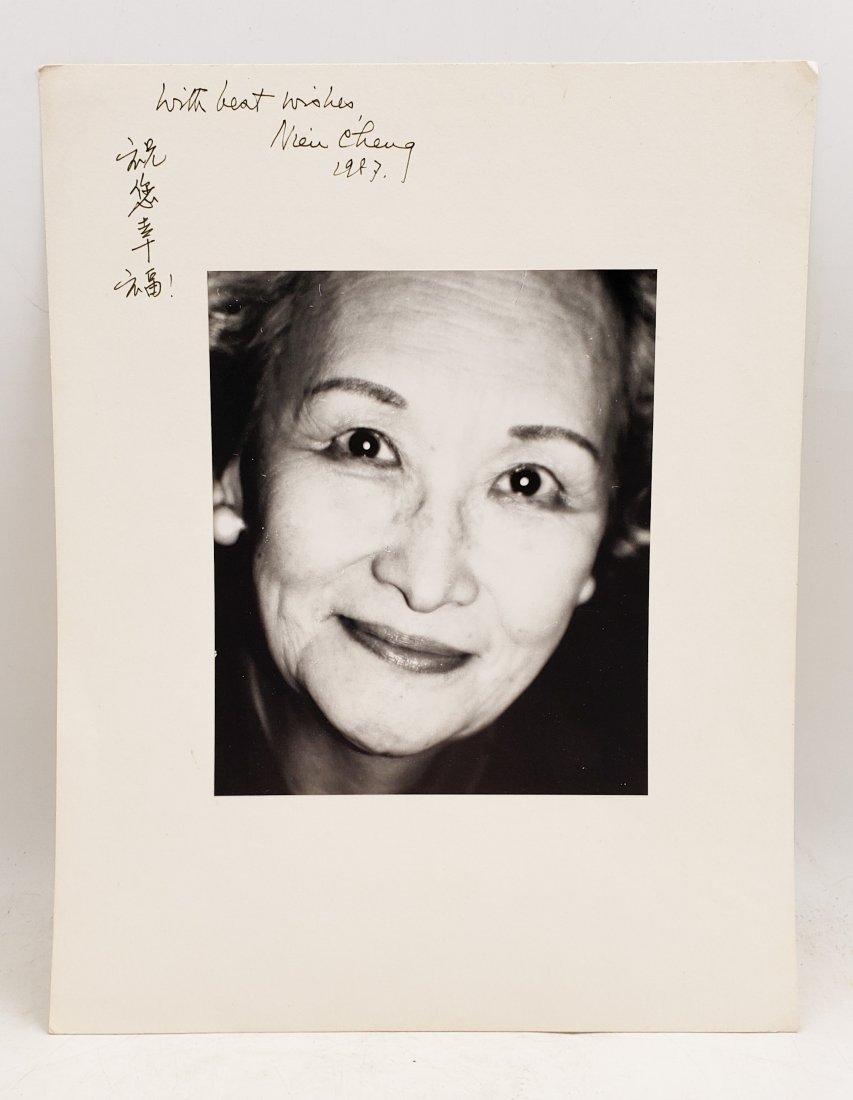 With best wishes,
Nien Cheng
1987.
祝您幸福!